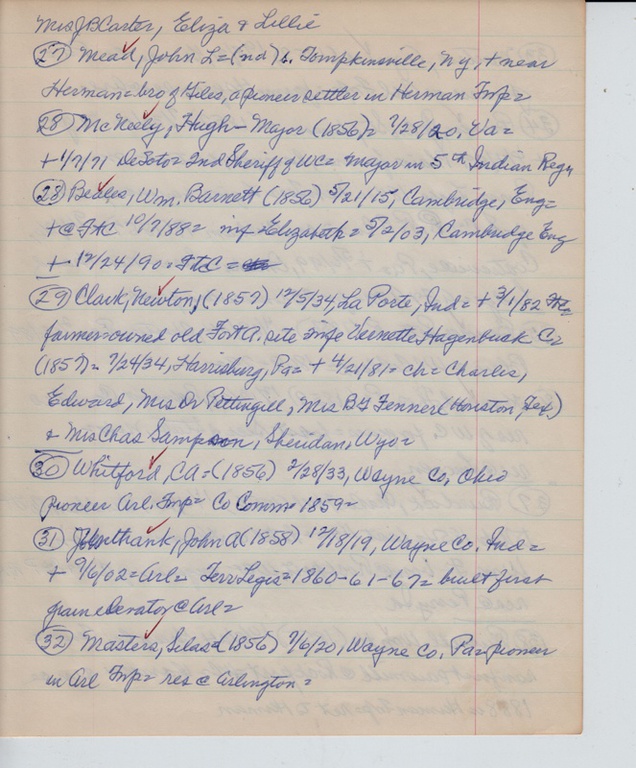 Mrs J B Carter, Eliza & Lillie
(27) Mead, John L = (nd) b. Tompkinsville, N y, + near
Herman = bro of Giles, a pioneer settler in Herman Twp =
(28) McNeely, Hugh - Major (1856) = 7/28/20, Va =
+ 4/7/71 DeSoto = 2nd Sheriff of WC = major in 5th Indian Reg
(28) Beales, Wm. Barnett (1856) 5/21/15, Cambridge, Eng =
+ @ FtC 10/7/88 = wife Elizabeth = 5/2/03, Cambridge Eng
+ 12/24/90 = FtC =
(29) Clark, Newton, (1857) 12/5/34, La Porte, Ind = + 3/1/82
farmer-owned old Fort A. site wife Vernette Hagenbuck C =
(1857) = 7/24/34, Harrisburg, Pa = + 4/21/81 = ch = Charles,
Edward, Mrs Dr Pettingill, Mrs B F Fenner (Houston, Tex)
& Mrs Chas Sampson, Sheridan, Wyo =
(30) Whitford, CA = (1856) 2/28/33, Wayne Co, Ohio
pioneer Arl. Twp = Co Comm = 1859 =
(31) Unthank, John A (1858) 12/18/19, Wayne Co. Ind =
+ 9/6/02 = Arl = Terr Legis = 1860-61-67 = built first
grain elevator @ Arl =
(32) Masters, Silas (1856) 7/6/20, Wayne Co, Pa = pioneer
in Arl Twp = res @ Arlington =